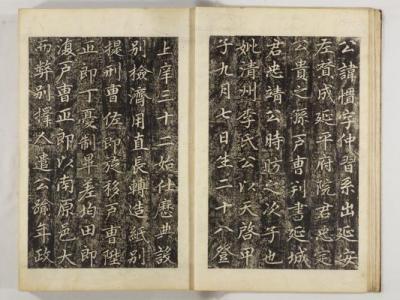 公諱慴字仲習系出延安
左贊成延平府院君忠定
公貴之孫戶曹判書延城
君忠靖公時昉之次子也
妣淸州李氏公以天啓甲
子九月七日生二十八登
上庠三十二始仕歷典設
別檢濟用直長轉造紙別
提刑曹佐郎旋移戶曹陞
正郎丁憂制畢差均田郎
復戶曹正郎以南原邑大
而弊別擇人遣公踰年政